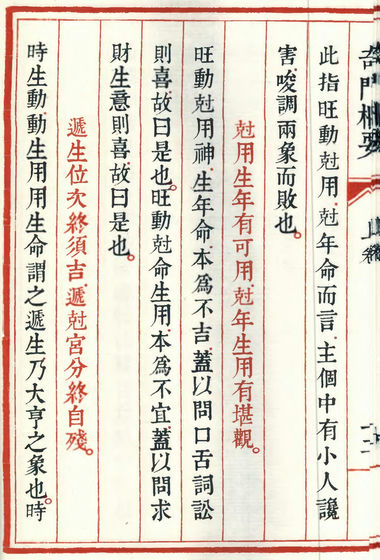 奇門樞要
此指旺動尅用尅年命而言主個中有小人讒
害唆調兩象而敗也
尅用生年有可用尅年生用有堪觀
旺動尅用神生年命本爲不吉蓋以問口舌詞訟
則喜故曰是也旺動尅命生用本爲不宜蓋以問求
財生意則喜故曰是也
遞生位次終須吉遞尅宮分終自殘
時生動動生用用生命謂之遞生乃大亨之象也時